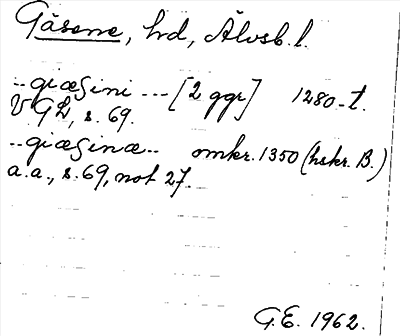 Gäsene, hd, Älvsb. l.
..giæsini --- [2 ggr] 1280-t.
VGL, s. 69.
..giæsinæ.. omkr. 1350 (hskr. B.)
a.a., s. 69, not 27.
G.E. 1962.